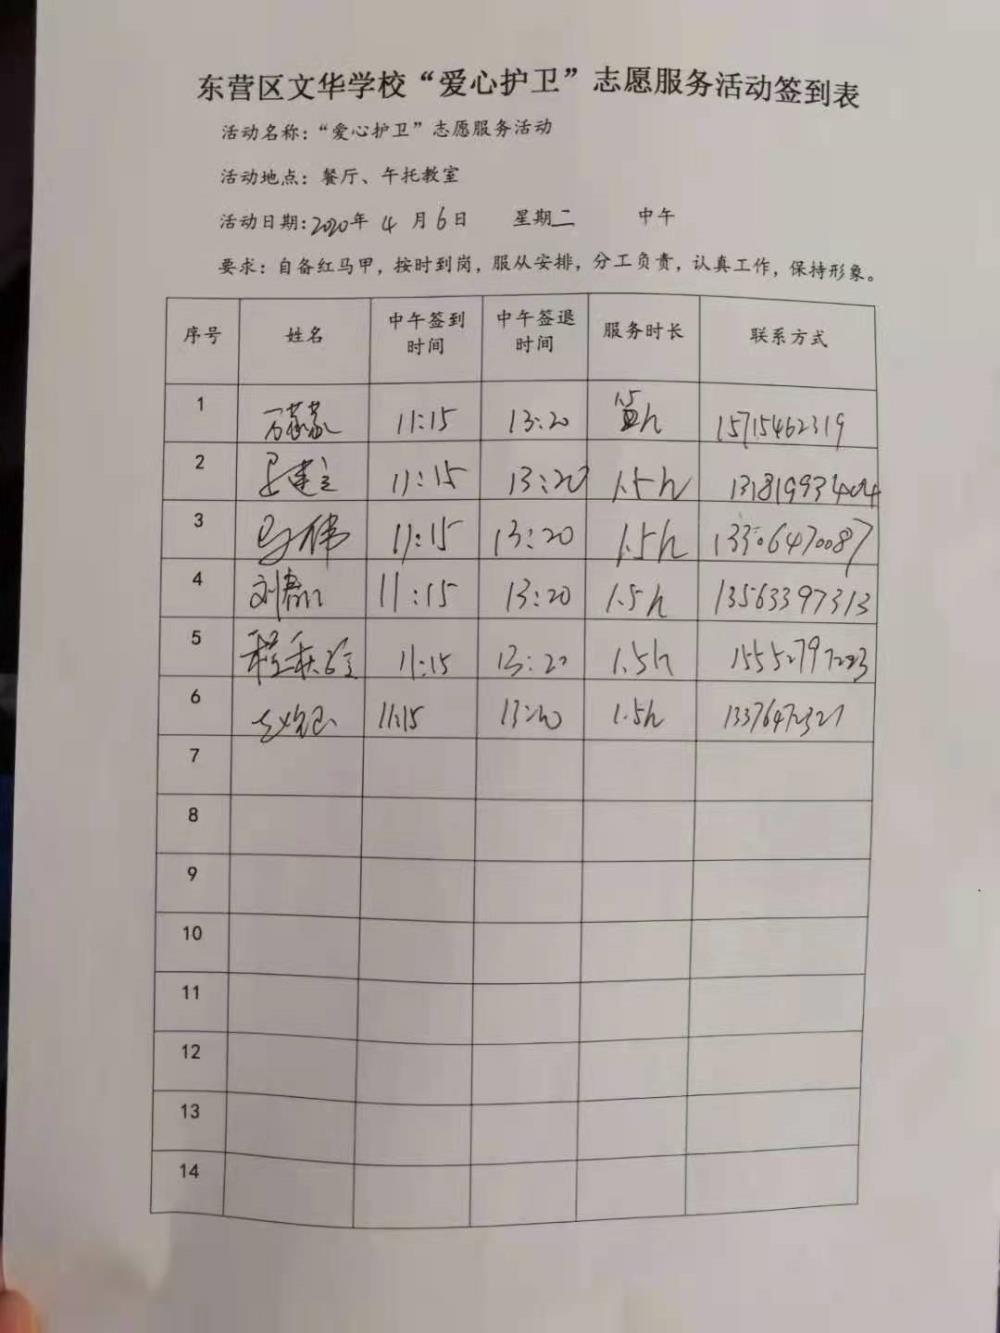 东营区文华学校“爱心护卫”志愿服务活动签到表
活动名称：“爱心护卫”志愿服务活动
活动地点：餐厅、午托教室
活动日期：2020年 4 月 6 日 星期二 中午
要求：自备红马甲，按时到岗，服从安排，分工负责，认真工作，保持形象。
序号 姓名 中午签到时间 中午签退时间 服务时长 联系方式
1 11:15 13:20 1.5h 15715462319
2 11:15 13:20 1.5h
3 马伟 11:15 13:20 1.5h 13306470087
4 11:15 13:20 1.5h 13563397313
5 11:15 13:20 1.5h
6 11:15 13:20 1.5h
7
8
9
10
11
12
13
14